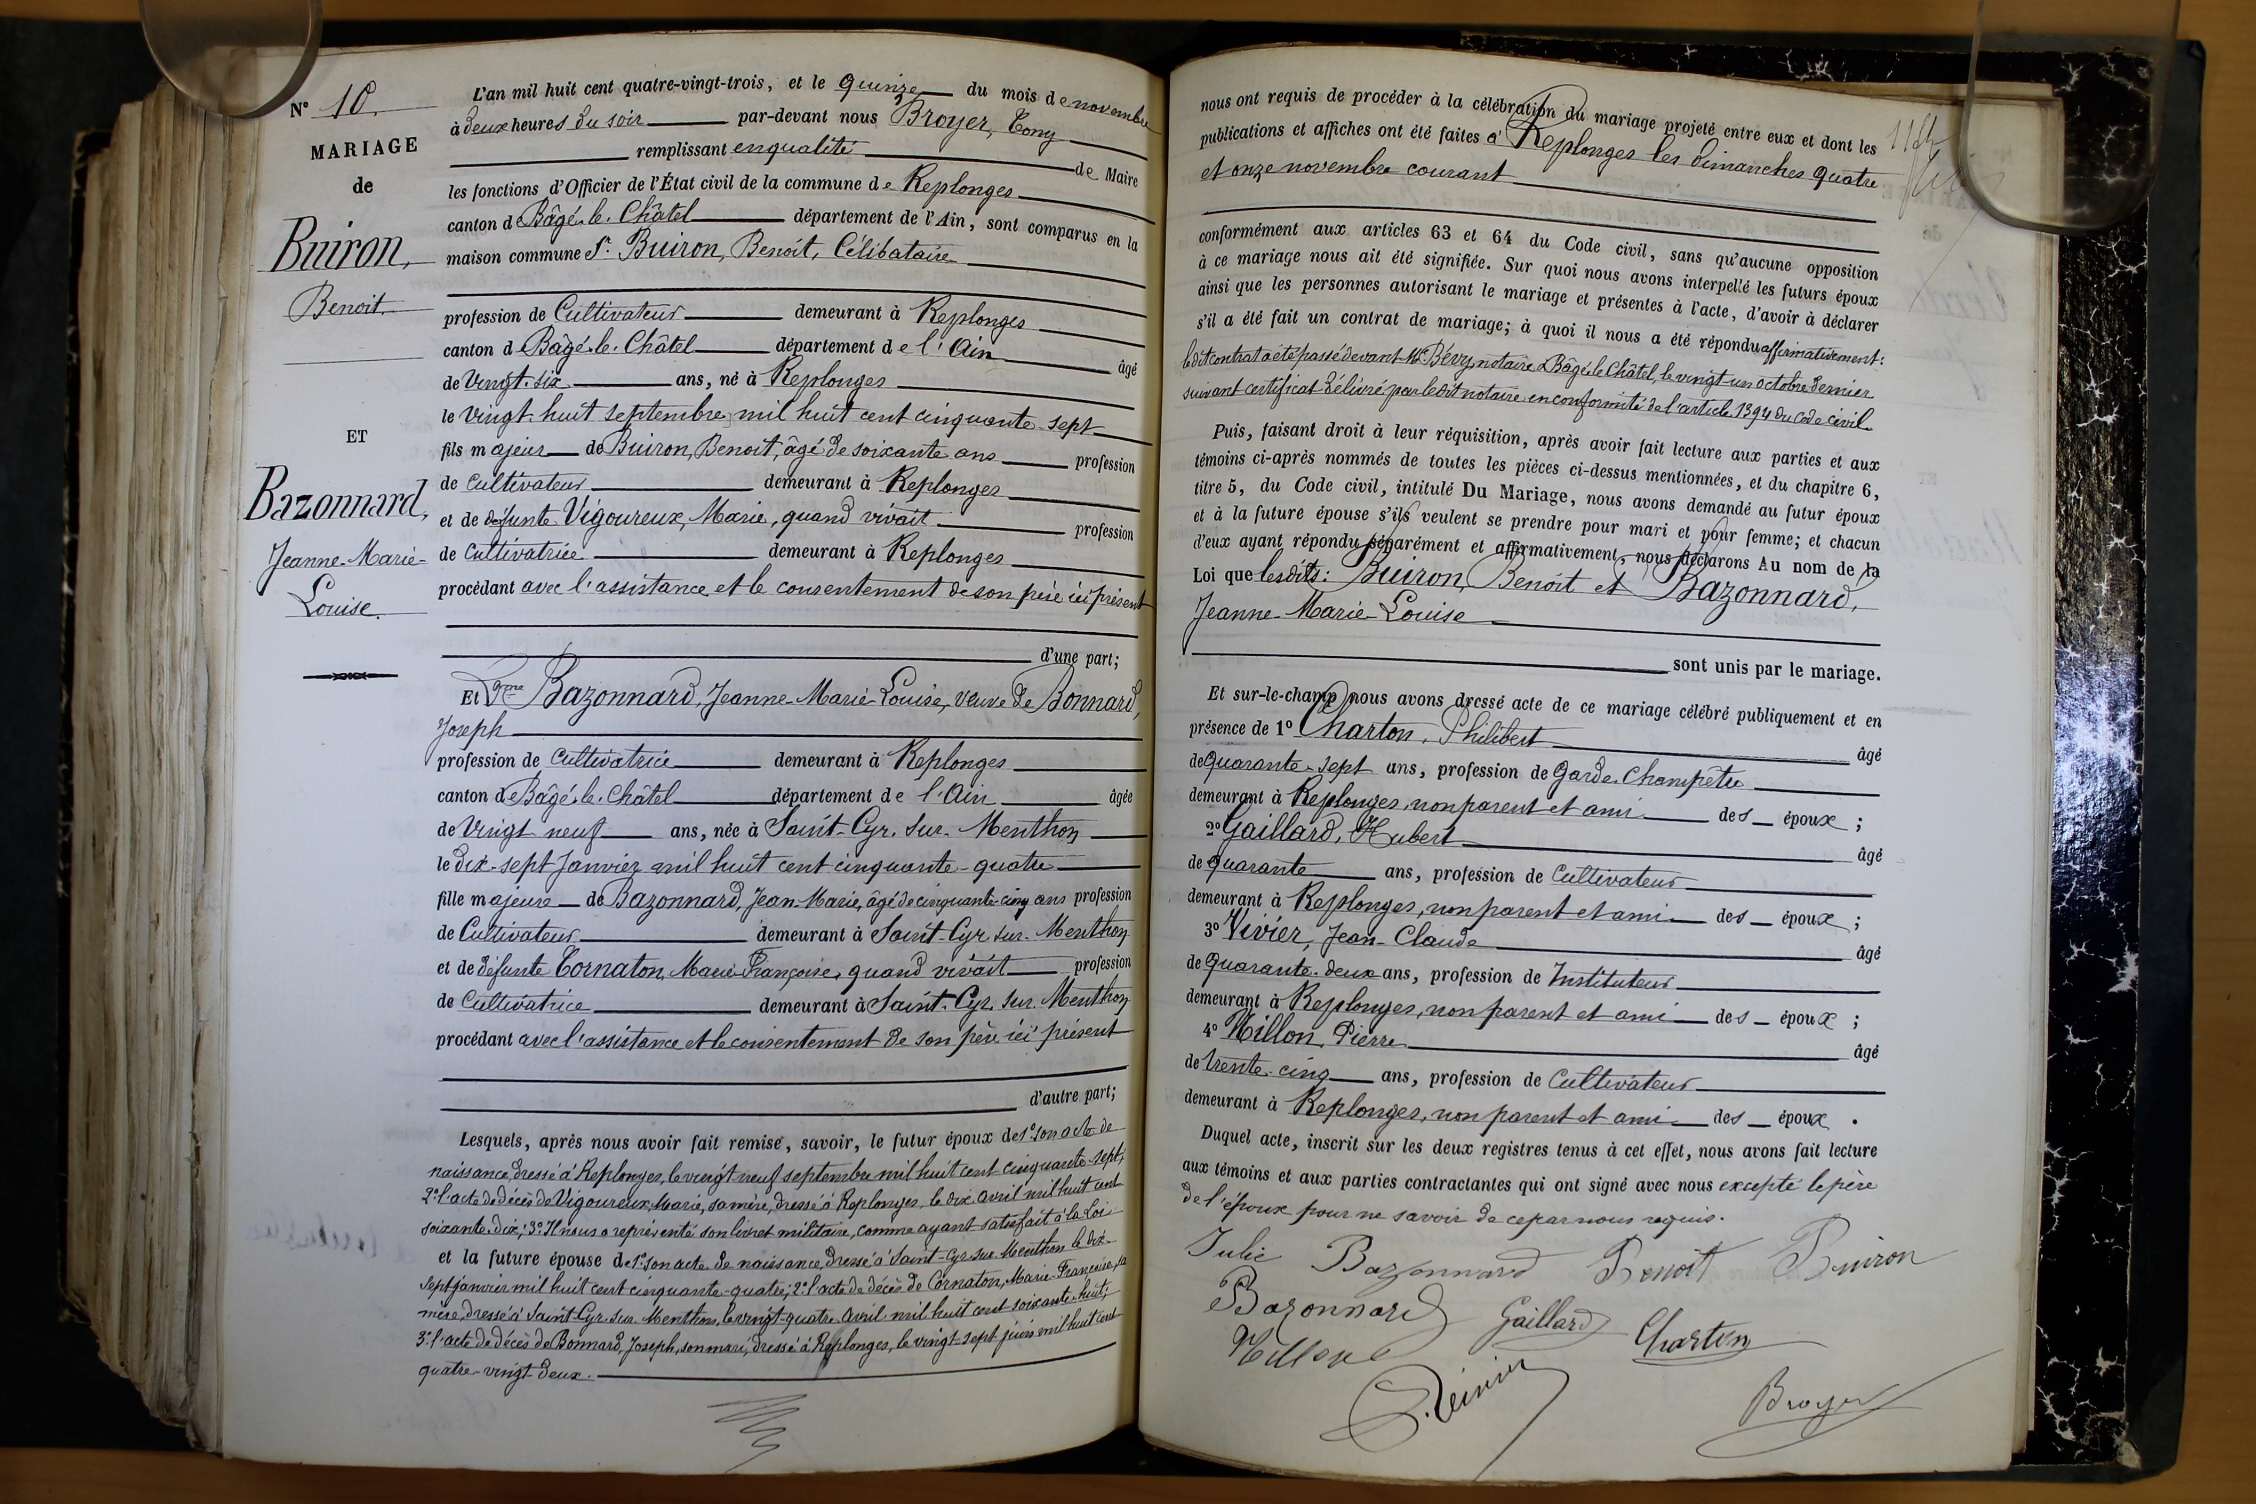 N° 10.
MARIAGE
de
Buiron,
Benoit.
ET
Bazonnard,
Jeanne-Marie-
Louise.
L'an mil huit cent quatre-vingt-trois, et le quinze du mois de novembre
à deux heures du soir par-devant nous Broyer, Tony
remplissant en qualité de Maire
les fonctions d'Officier de l'État civil de la commune de Replonges
canton de Bâgé-le-Châtel département de l'Ain, sont comparus en la
maison commune Sr. Buiron, Benoit, Célibataire
profession de Cultivateur demeurant à Replonges
canton d Bâgé-le-Châtel département de l'Ain âgé
de Vingt-six ans, né à Replonges
le vingt-huit septembre mil huit cent cinquante-sept
fils majeur de Buiron, Benoit, âgé de soixante ans profession
de cultivateur demeurant à Replonges
et de défunte Vigoureux, Marie, quand vivait profession
de cultivatrice demeurant à Replonges
procédant avec l'assistance et le consentement de son père ici présent
d'une part;
Et Dme Bazonnard, Jeanne-Marie-Louise, veuve de Bonnard,
Joseph
profession de cultivatrice demeurant à Replonges
canton de Bâgé-le-Châtel département de l'Ain âgée
de Vingt neuf ans, née à Saint-Cyr-sur-Menthon
le dix-sept Janvier mil huit cent cinquante-quatre
fille majeure de Bazonnard, Jean-Marie, âgé de cinquante-cinq ans profession
de Cultivateur demeurant à Saint-Cyr-sur-Menthon
et de défunte Cornaton, Marie-Françoise, quand vivait profession
de Cultivatrice demeurant à Saint-Cyr-sur-Menthon
procédant avec l'assistance et le consentement de son père ici présent
d'autre part;
Lesquels, après nous avoir fait remise, savoir, le futur époux de 1° son acte de
naissance, dressé à Replonges, le vingt neuf septembre mil huit cent cinquante-sept;
2° l'acte de décès de Vigoureux, Marie, sa mère, dressé à Replonges, le dix avril mil huit cent
soixante-dix; 3° Il nous a représenté son livret militaire, comme ayant satisfait à la Loi
et la future épouse de 1° son acte de naissance, dressé à Saint-Cyr-sur-Menthon le dix-
sept janvier mil huit cent cinquante-quatre; 2° l'acte de décès de Cornaton, Marie-Françoise, sa
mère, dressé à Saint-Cyr-sur-Menthon, le vingt-quatre avril mil huit cent soixante-huit;
3° l'acte de décès de Bonnard, Joseph, son mari, dressé à Replonges, le vingt-sept juin mil huit cent
quatre-vingt deux.
nous ont requis de procéder à la célébration du mariage projeté entre eux et dont les
publications et affiches ont été faites à Replonges les dimanches quatre
et onze novembre courant
conformément aux articles 63 et 64 du Code civil, sans qu'aucune opposition
à ce mariage nous ait été signifiée. Sur quoi nous avons interpellé les futurs époux
ainsi que les personnes autorisant le mariage et présentes à l'acte, d'avoir à déclarer
s'il a été fait un contrat de mariage; à quoi il nous a été répondu affirmativement:
le dit contrat a été passé devant Me Bévy, notaire à Bâgé-le-Châtel, le vingt-un octobre dernier
suivant certificat délivré par le dit notaire en conformité de l'article 1394 du Code civil.
Puis, faisant droit à leur réquisition, après avoir fait lecture aux parties et aux
témoins ci-après nommés de toutes les pièces ci-dessus mentionnées, et du chapitre 6,
titre 5, du Code civil, intitulé Du Mariage, nous avons demandé au futur époux
et à la future épouse s'ils veulent se prendre pour mari et pour femme; et chacun
d'eux ayant répondu séparément et affirmativement, nous déclarons Au nom de la
Loi que les dits: Buiron, Benoit et Bazonnard,
Jeanne-Marie-Louise
sont unis par le mariage.
Et sur-le-champ nous avons dressé acte de ce mariage célébré publiquement et en
présence de 1° Charton, Philibert âgé
de quarante-sept ans, profession de Garde-Champêtre
demeurant à Replonges, non parent et ami des époux;
2° Gaillard, Hubert âgé
de quarante ans, profession de Cultivateur
demeurant à Replonges, non parent et ami des époux;
3° Vivier, Jean-Claude âgé
de quarante-deux ans, profession de Instituteur
demeurant à Replonges, non parent et ami des époux;
4° Millon, Pierre âgé
de trente-cinq ans, profession de Cultivateur
demeurant à Replonges, non parent et ami des époux.
Duquel acte, inscrit sur les deux registres tenus à cet effet, nous avons fait lecture
aux témoins et aux parties contractantes qui ont signé avec nous excepté le père
de l'époux pour ne savoir de ce par nous requis.
Julie Bazonnard Benoit Buiron
Bazonnard Gaillard Charton
Millon
Broyer